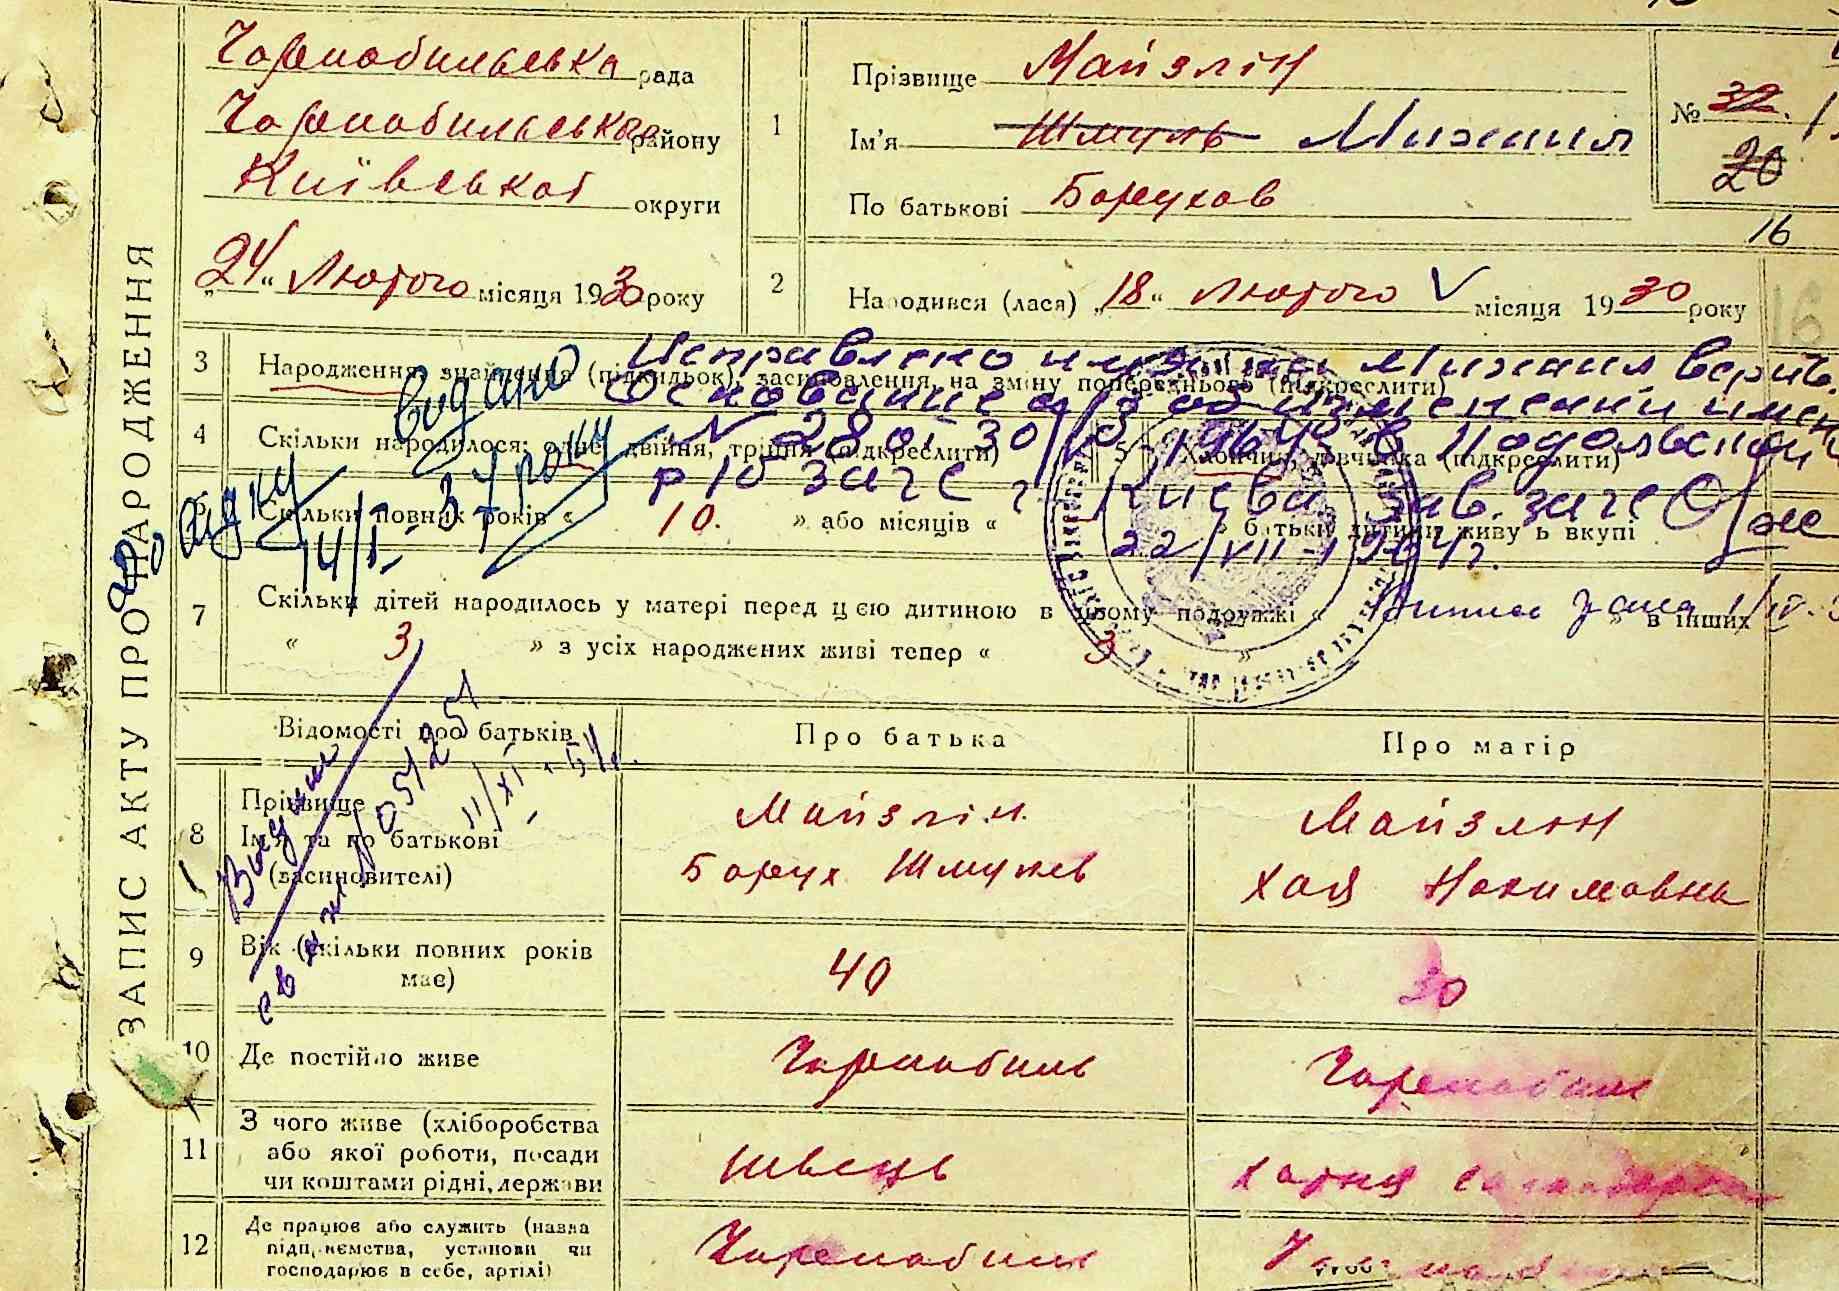 ЗАПИС АКТУ ПРО НАРОДЖЕННЯ
Чорнобильська рада
Чорнобильського району
Київської округи
„24“ Лютого місяця 1930 року
1
Прізвище Майзлін
Ім'я Шмуль Михаил
По батькові Борухов
№ 32
20
16
2
Народився (лася) „18“ Лютого V місяця 1930 року
16
3 Народження, знайдення (підкидьок), засиновлення, на зміну попереднього (підкреслити)
Исправлено имя на Михаил верить.
Основание а/з об изменении имени
№ 280 30/VI 1964 г. в Подольском
р/б загс г. Киева Зав. загс
22/VII-1964 г.
4 Скільки народилося: одне, двійня, трійня (підкреслити)
5 Хлопчик, дівчинка (підкреслити)
видано
14/I- 37 року
Скільки повних років « 10. » або місяців « » батьки дитини живуть вкупі
7 Скільки дітей народилось у матері перед цією дитиною в цьому подружжі « » в інших
« 3 » з усіх народжених живі тепер « 3 »
Відомості про батьків
Про батька
Про матір
8 Прізвище
Ім'я та по батькові
(засиновителі)
Майзлін
Борух Шмулев
Майзлин
Хая Нохимовна
11/XI-54 г.
9 Вік (скільки повних років має)
40
30
10 Де постійно живе
Чорнобиль
Чорнобиль
11 З чого живе (хліборобства
або якої роботи, посади
чи коштами рідні, держави
швець
хатня господарка
12 Де працює або служить (назва
підприємства, установи чи
господарює в себе, артілі)
Чорнобиль
Чорнобиль